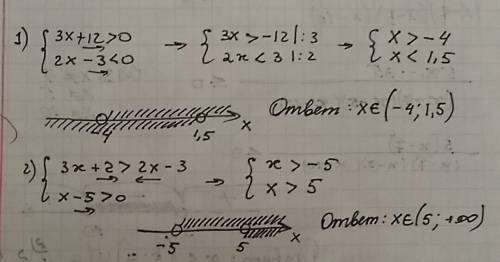 1) { 3x+12>0 → { 3x>-12 |:3 → { x>-4
2x-3<0 2x<3 |:2 x<1,5
-4 1,5 x Ответ: x∈(-4; 1,5)
2) { 3x+2>2x-3 → { x>-5
x-5>0 x>5
-5 5 x Ответ: x∈(5; +∞)